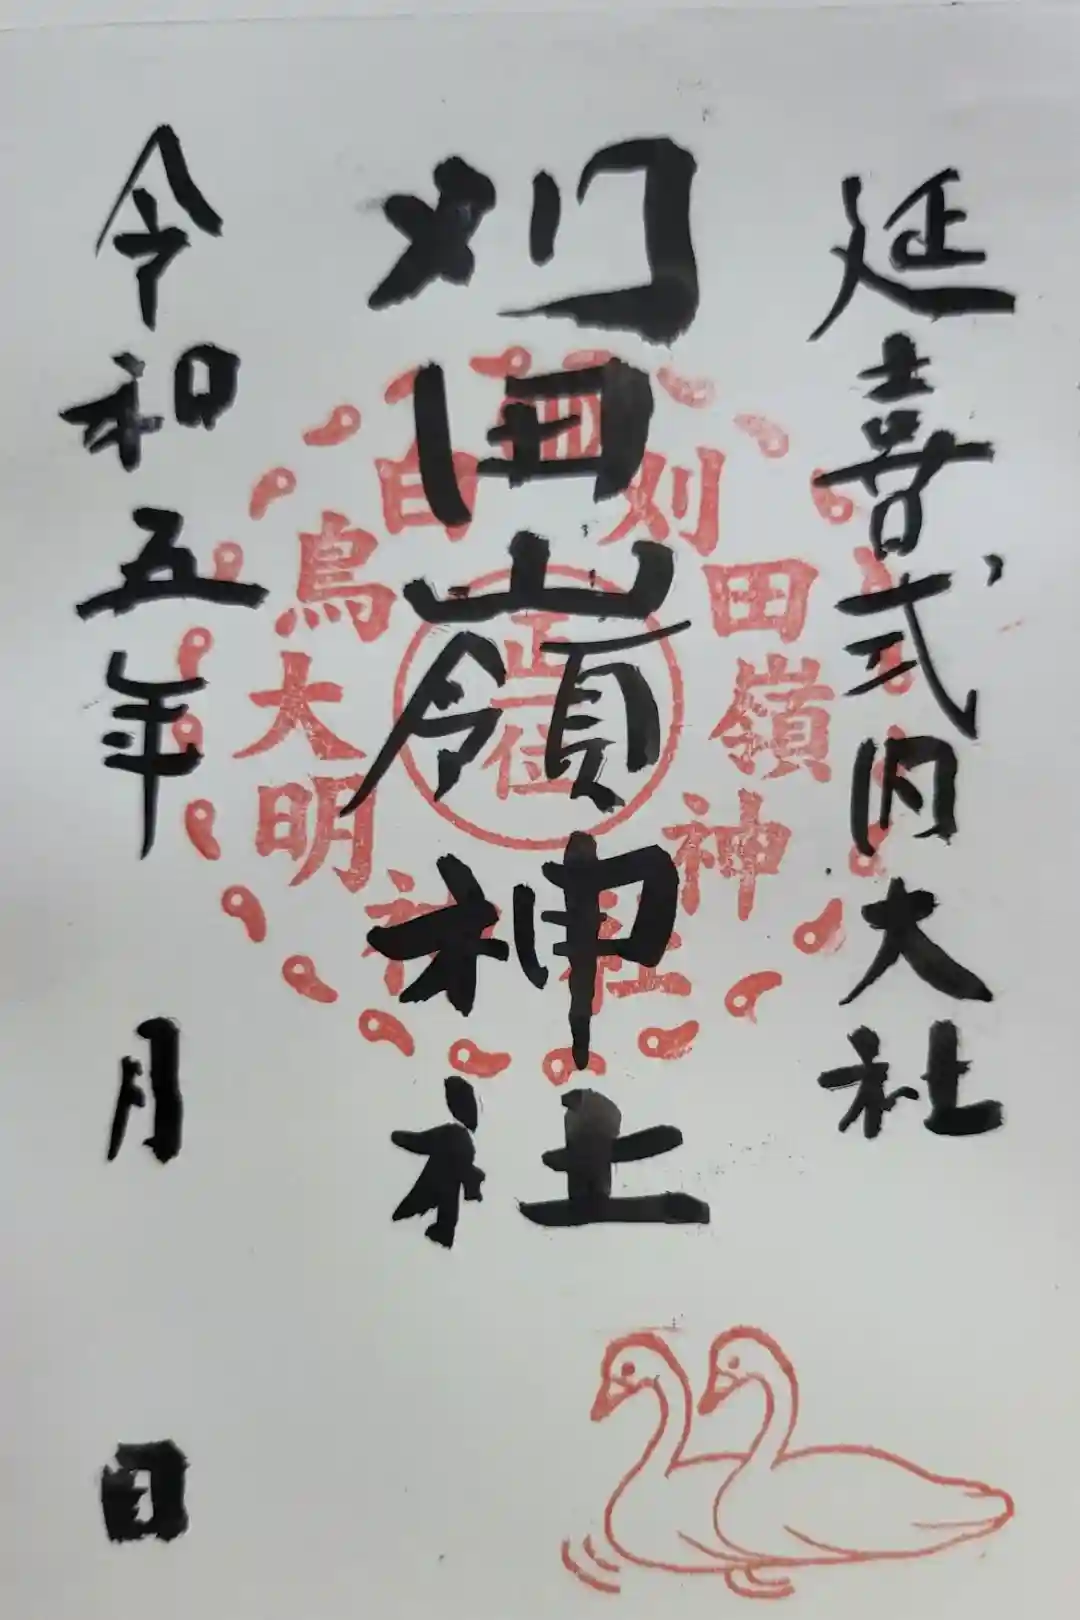 延喜式内大社
刈田嶺神社
令和五年 月 日
刈田嶺神社
白鳥大明神
正一位